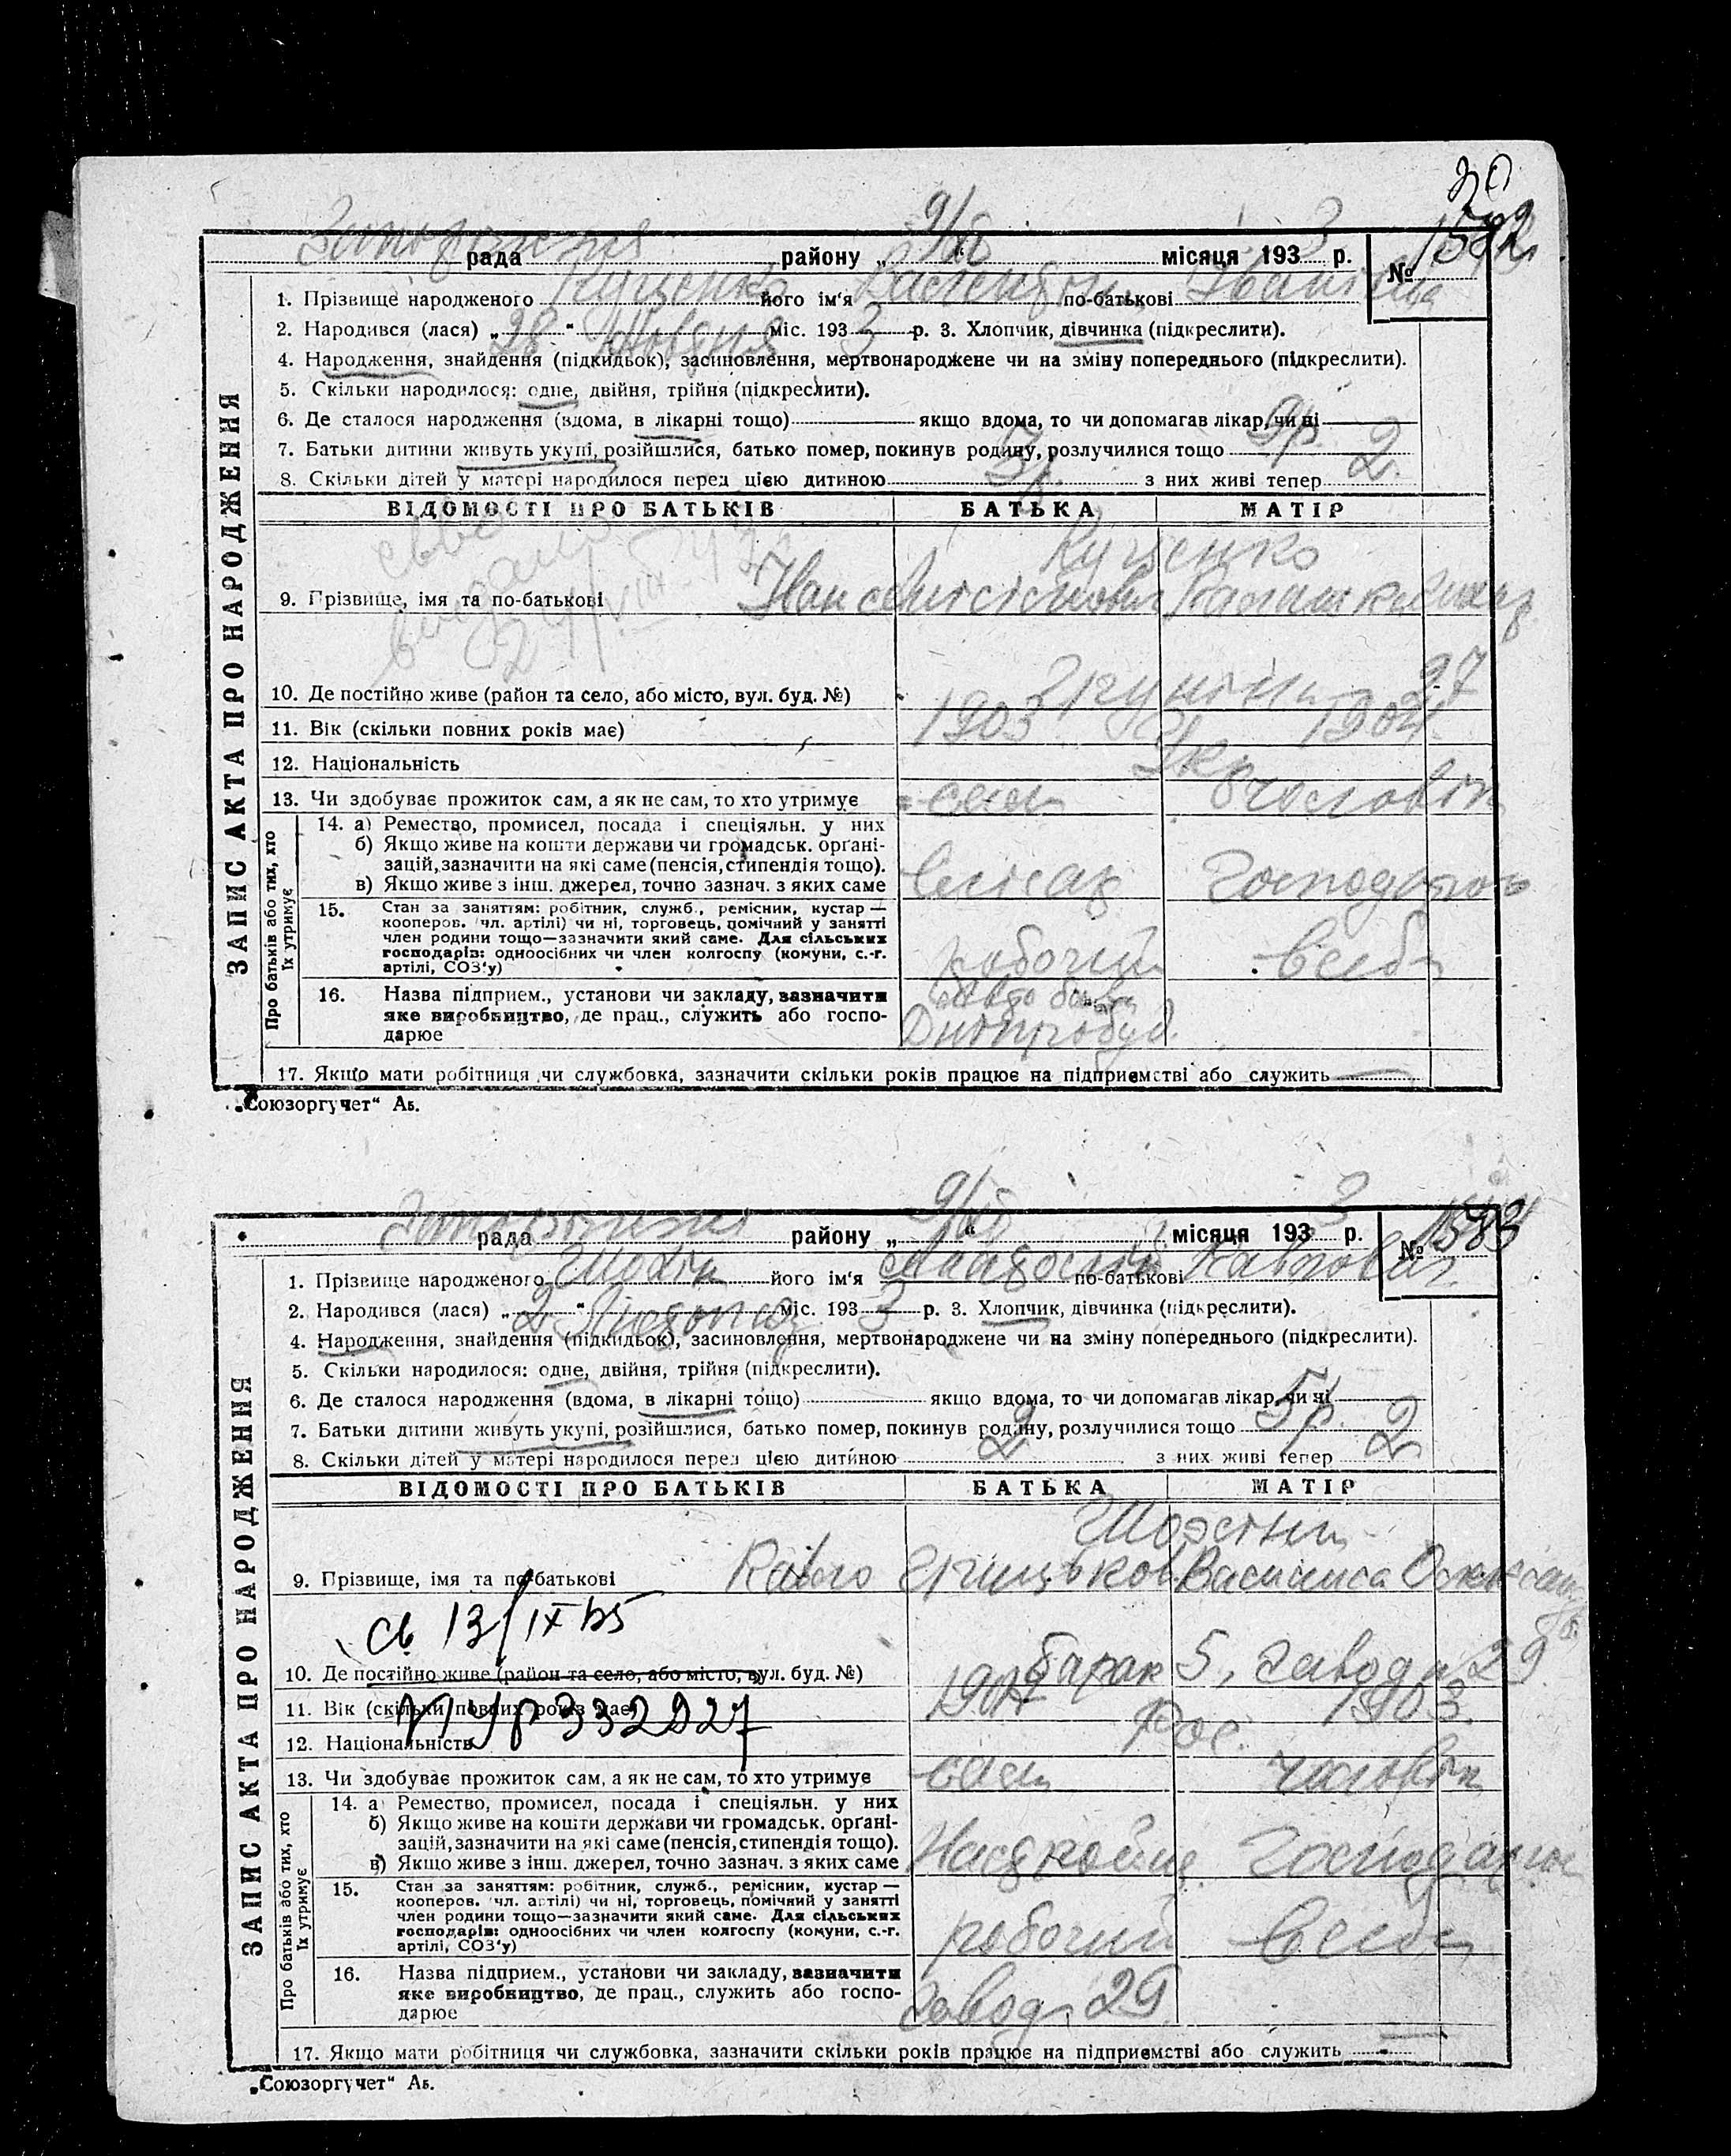 30
Запоріжжя 9/XI 3
рада району „ “ місяця 193 р. № 1582
1. Прізвище народженого Куценко його ім'я Валентина по-батькові Іванівна
2. Народився (лася) „28“ Жовтня міс. 1933 р. 3. Хлопчик, дівчинка (підкреслити).
4. Народження, знайдення (підкидьок), засиновлення, мертвонароджене чи на зміну попереднього (підкреслити).
5. Скільки народилося: одне, двійня, трійня (підкреслити).
6. Де сталося народження (вдома, в лікарні тощо) якщо вдома, то чи допомагав лікар, чи ні
7. Батьки дитини живуть укупі, розійшлися, батько помер, покинув родину, розлучилися тощо 9р.
8. Скільки дітей у матері народилося перед цією дитиною 3 з них живі тепер 2.
ЗАПИС АКТА ПРО НАРОДЖЕННЯ
ВІДОМОСТІ ПРО БАТЬКІВ БАТЬКА МАТІР
Куценко
9. Прізвище, імя та по-батькові Іван
10. Де постійно живе (район та село, або місто, вул. буд. №) 27
11. Вік (скільки повних років має) 1903 1904
12. Національність Укр
13. Чи здобуває прожиток сам, а як не сам, то хто утримує сам чоловік
Про батьків або тих, хто їх утримує
14. а) Ремество, промисел, посада і спеціяльн. у них
б) Якщо живе на кошти держави чи громадськ. орґані-
зацій, зазначити на які саме (пенсія, стипендія тощо).
в) Якщо живе з інш. джерел, точно зазнач. з яких саме слюсар господарює
15. Стан за заняттям: робітник, служб., ремісник, кустар —
кооперов. чл. артілі) чи ні, торговець, помічний у занятті
член родини тощо—зазначити який саме. Для сільських
господарів: одноосібних чи член колгоспу (комуни, с.-г.
артілі, СОЗ'у) робочий
16. Назва підприєм., установи чи закладу, зазначити
яке виробництво, де прац., служить або госпо-
дарює Дніпробуд.
17. Якщо мати робітниця чи службовка, зазначити скільки років працює на підприємстві або служить —
„Союзоргучет“ Аб.
Запоріжжя 9/XI 3
рада району „ “ місяця 193 р. № 1583
1. Прізвище народженого Шохін його ім'я по-батькові Павлович
2. Народився (лася) „2“ Листопад міс. 1933 р. 3. Хлопчик, дівчинка (підкреслити).
4. Народження, знайдення (підкидьок), засиновлення, мертвонароджене чи на зміну попереднього (підкреслити).
5. Скільки народилося: одне, двійня, трійня (підкреслити).
6. Де сталося народження (вдома, в лікарні тощо) якщо вдома, то чи допомагав лікар, чи ні
7. Батьки дитини живуть укупі, розійшлися, батько помер, покинув родину, розлучилися тощо 5р.
8. Скільки дітей у матері народилося перед цією дитиною 2 з них живі тепер 2
ЗАПИС АКТА ПРО НАРОДЖЕННЯ
ВІДОМОСТІ ПРО БАТЬКІВ БАТЬКА МАТІР
9. Прізвище, імя та по-батькові Павло Василиса
св 13/IX 55
10. Де постійно живе (район та село, або місто, вул. буд. №) барак 5, завод 29
11. Вік (скільки повних років має) 1903
12. Національність Рос.
13. Чи здобуває прожиток сам, а як не сам, то хто утримує сам чоловік
Про батьків або тих, хто їх утримує
14. а) Ремество, промисел, посада і спеціяльн. у них
б) Якщо живе на кошти держави чи громадськ. орґані-
зацій, зазначити на які саме (пенсія, стипендія тощо).
в) Якщо живе з інш. джерел, точно зазнач. з яких саме господарює
15. Стан за заняттям: робітник, служб., ремісник, кустар —
кооперов. чл. артілі) чи ні, торговець, помічний у занятті
член родини тощо—зазначити який саме. Для сільських
господарів: одноосібних чи член колгоспу (комуни, с.-г.
артілі, СОЗ'у) робочий
16. Назва підприєм., установи чи закладу, зазначити
яке виробництво, де прац., служить або госпо-
дарює завод 29
17. Якщо мати робітниця чи службовка, зазначити скільки років працює на підприємстві або служить —
„Союзоргучет“ Аб.